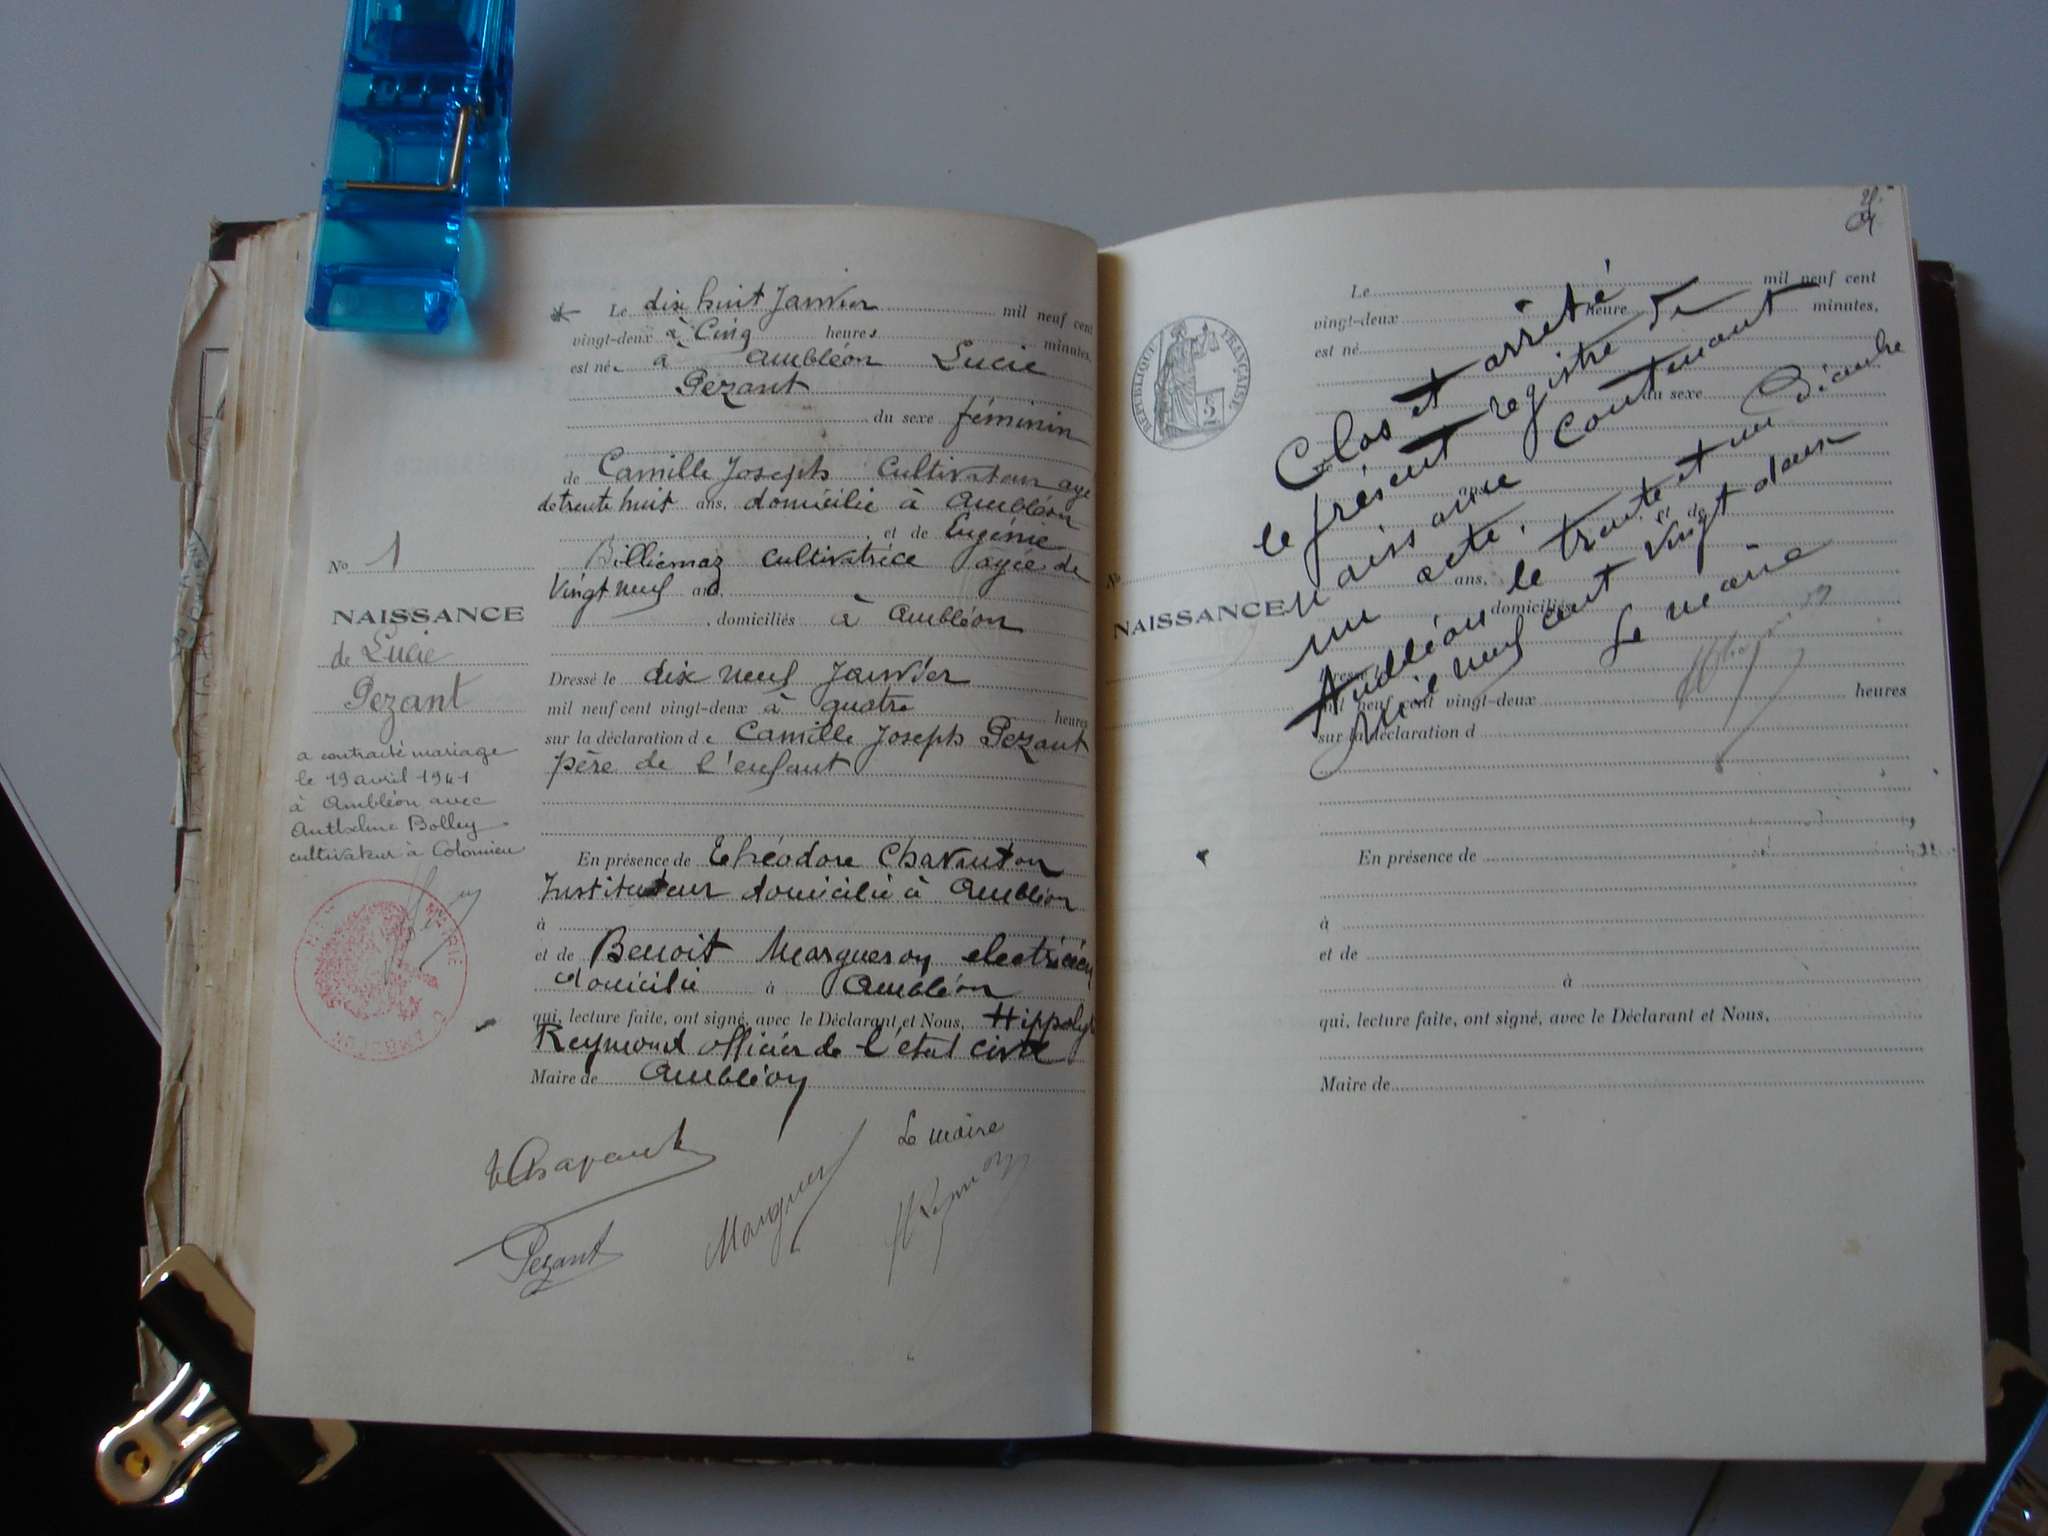 Le dix huit Janvier mil neuf cent
vingt-deux à Cinq heures minutes,
est née à Ambléon Lucie
Pezant
du sexe féminin
de Camille Joseph Cultivateur agé
de trente huit ans, domicilié à Ambléon
et de Eugénie
Billiemaz cultivatrice agée de
Vingt neuf ans,
domiciliés à Ambléon
No 1
NAISSANCE
de Lucie
Pezant
a contracté mariage
le 19 avril 1941
à Ambléon avec
Anthelme Bolley
cultivateur à Colomieu
MAIRIE
Dressé le dix neuf Janvier
mil neuf cent vingt-deux à quatre heures
sur la déclaration de Camille Joseph Pezant
père de l'enfant
En présence de Théodore Chavanton
Instituteur domicilié à Ambléon
à
et de Benoit Margueron electricien
domicilié à Ambléon
qui, lecture faite, ont signé, avec le Déclarant et Nous, Hippolyte
Reymond officier de l'état civil
Maire de Ambléon
Le maire
Pezant
Le mil neuf cent
vingt-deux heure minutes,
est né
RÉPUBLIQUE FRANÇAISE
du sexe
ans,
et de
ans,
domiciliés
No
NAISSANCE
Dressé le
mil neuf cent vingt-deux heures
sur la déclaration d
En présence de
à
et de
à
qui, lecture faite, ont signé, avec le Déclarant et Nous,
Maire de
Clos et arrêté
le présent registre de
naissance contenant
un acte.
Ambléon le trente et un Décembre
Mil neuf cent vingt deux
Le maire